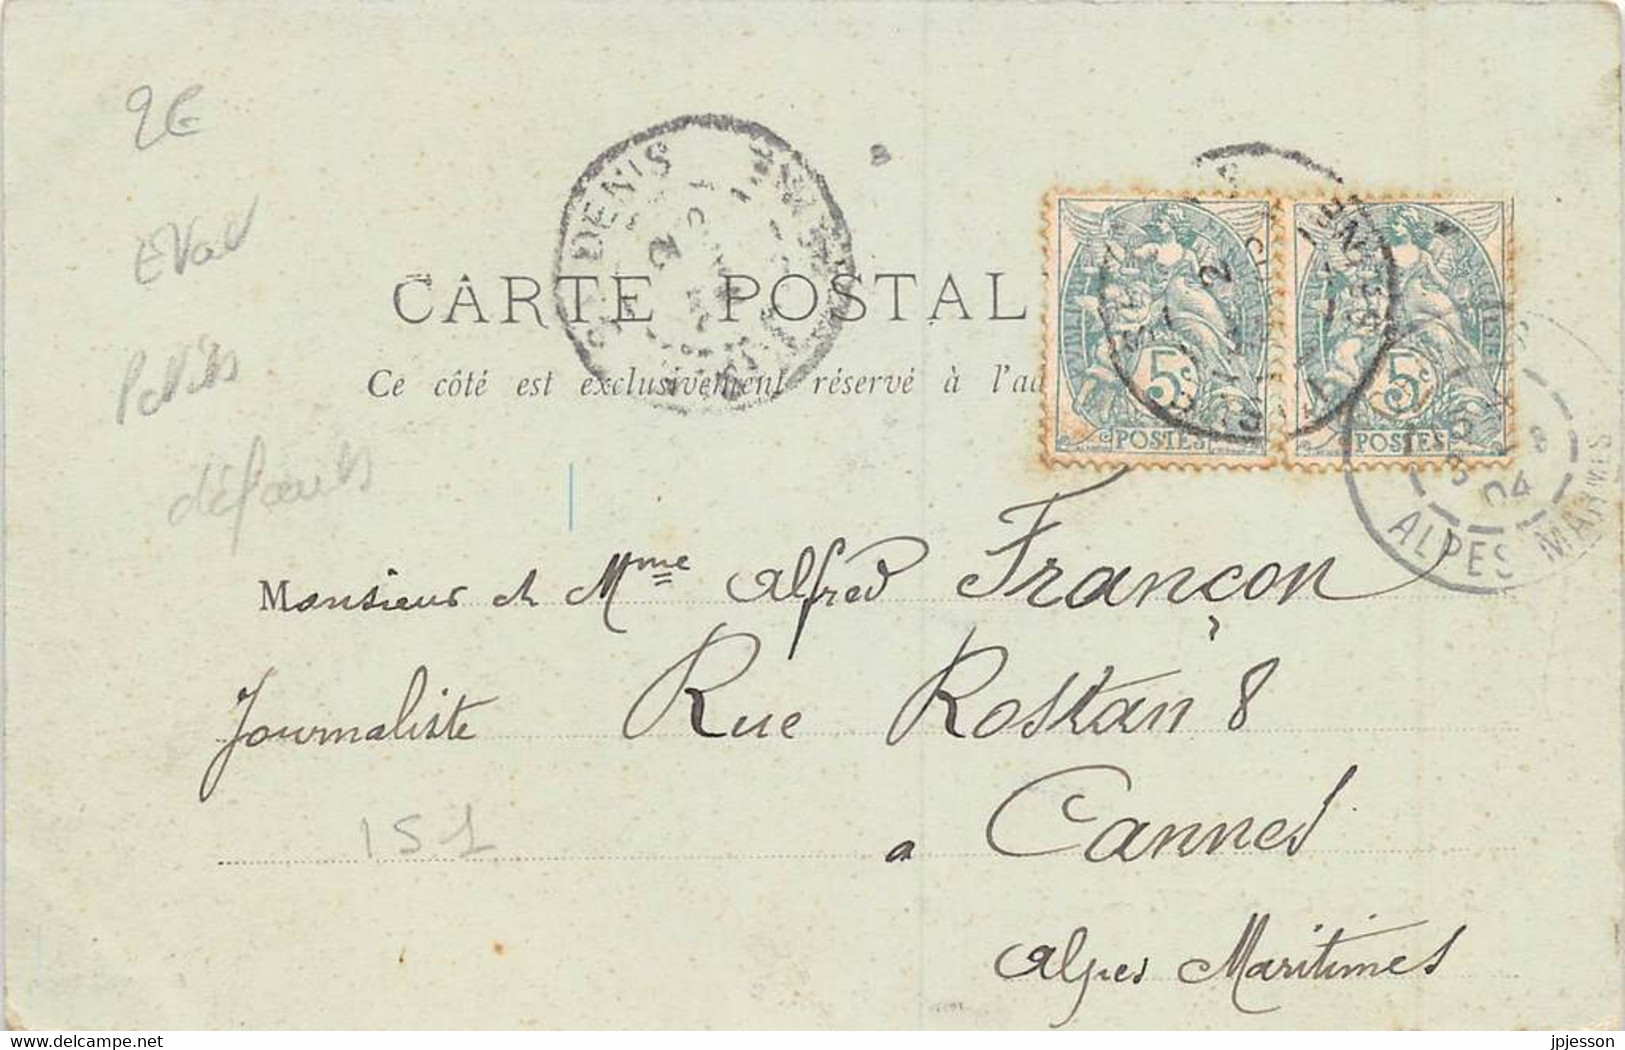 2€
EVad
Petits
défauts
DENIS
CARTE POSTAL
Ce côté est exclusivement réservé à l'ad
5c
POSTES
5c
POSTES
04
ALPES MARMES
Monsieur et Mme Alfred Françon
Journaliste Rue Rostan 8
151
a Cannes
Alpes Maritimes
delcampe.net
jpjesson